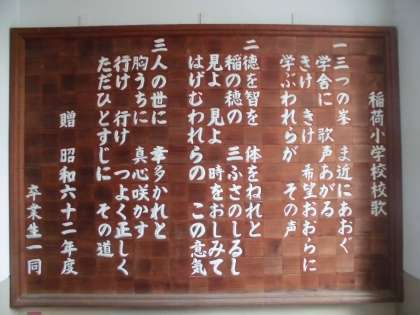 稲荷小学校校歌
一 三つの峯 ま近にあおぐ
学舎に 歌声あがる
きけ きけ 希望おおらに
学ぶわれらが その声
二 徳を智を 体をねれと
稲の穂の 三ふさのしるし
見よ 見よ 時をおしみて
はげむわれらの この意気
三 人の世に 幸多かれと
胸うちに 真心咲かす
行け 行け つよく正しく
ただひとすじに その道
贈 昭和六十二年度
卒業生一同